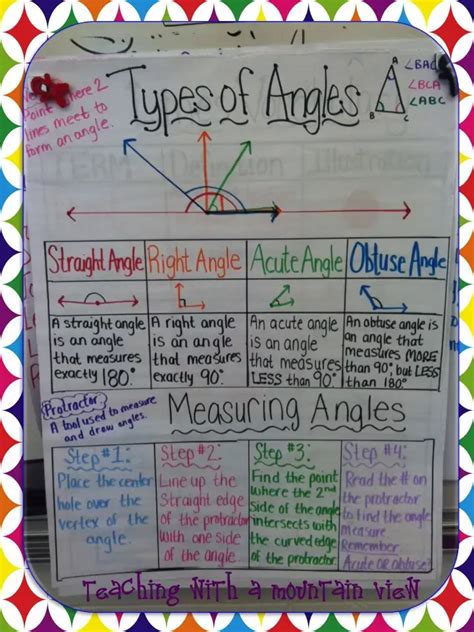 Point where 2
lines meet to
form an angle.
Types of Angles
A
B
C
∠BAC
∠BCA
∠ABC
Straight Angle
Right Angle
Acute Angle
Obtuse Angle
A straight angle
is an angle
that measures
exactly 180°.
A right angle
is an angle
that measures
exactly 90°.
An acute angle
is an angle
that measures
LESS than 90°.
An obtuse angle is
an angle that
measures MORE
than 90°, but LESS
than 180°.
Protractor-
A tool used to measure
and draw angles.
Measuring Angles
Step #1:
Place the center
hole over the
vertex of the
angle.
Step #2:
Line up the
straight edge
of the protractor
with one side
of the angle.
Step #3:
Find the point
where the 2nd
side of the angle
intersects with
the curved edge
of the protractor.
Step #4:
Read the # on
the protractor
to find the angle
measure.
Remember
Acute OR Obtuse?
Teaching with a mountain view